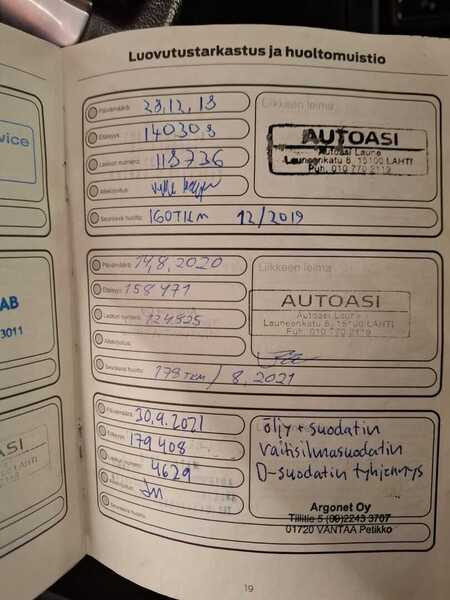 Luovutustarkastus ja huoltomuistio
Päivämäärä: 23.12.13
Etäisyys: 140303
Laskun numero: 118736
Allekirjoitus:
Seuraava huolto: 160TKM 12/2019
Liikkeen leima
AUTOASI
Autoasi Laune
Launeenkatu 6, 15100 LAHTI
Puh. 010 770 2119
Päivämäärä: 14,8,2020
Etäisyys: 158471
Laskun numero: 124525
Allekirjoitus:
Seuraava huolto: 178TKM / 8,2021
Liikkeen leima
AUTOASI
Autoasi Laune
Launeenkatu 6, 15100 LAHTI
Puh. 010 770 2119
Päivämäärä: 30.9.2021
Etäisyys: 179408
Laskun numero: 4629
Allekirjoitus: JM
Seuraava huolto:
öljy + suodatin
raitisilmasuodatin
D-suodatin tyhjennys
Argonet Oy
Tillitie 5 (09)2243 3707
01720 VANTAA Petikko
vice
AB
3011
AUTOASI
19